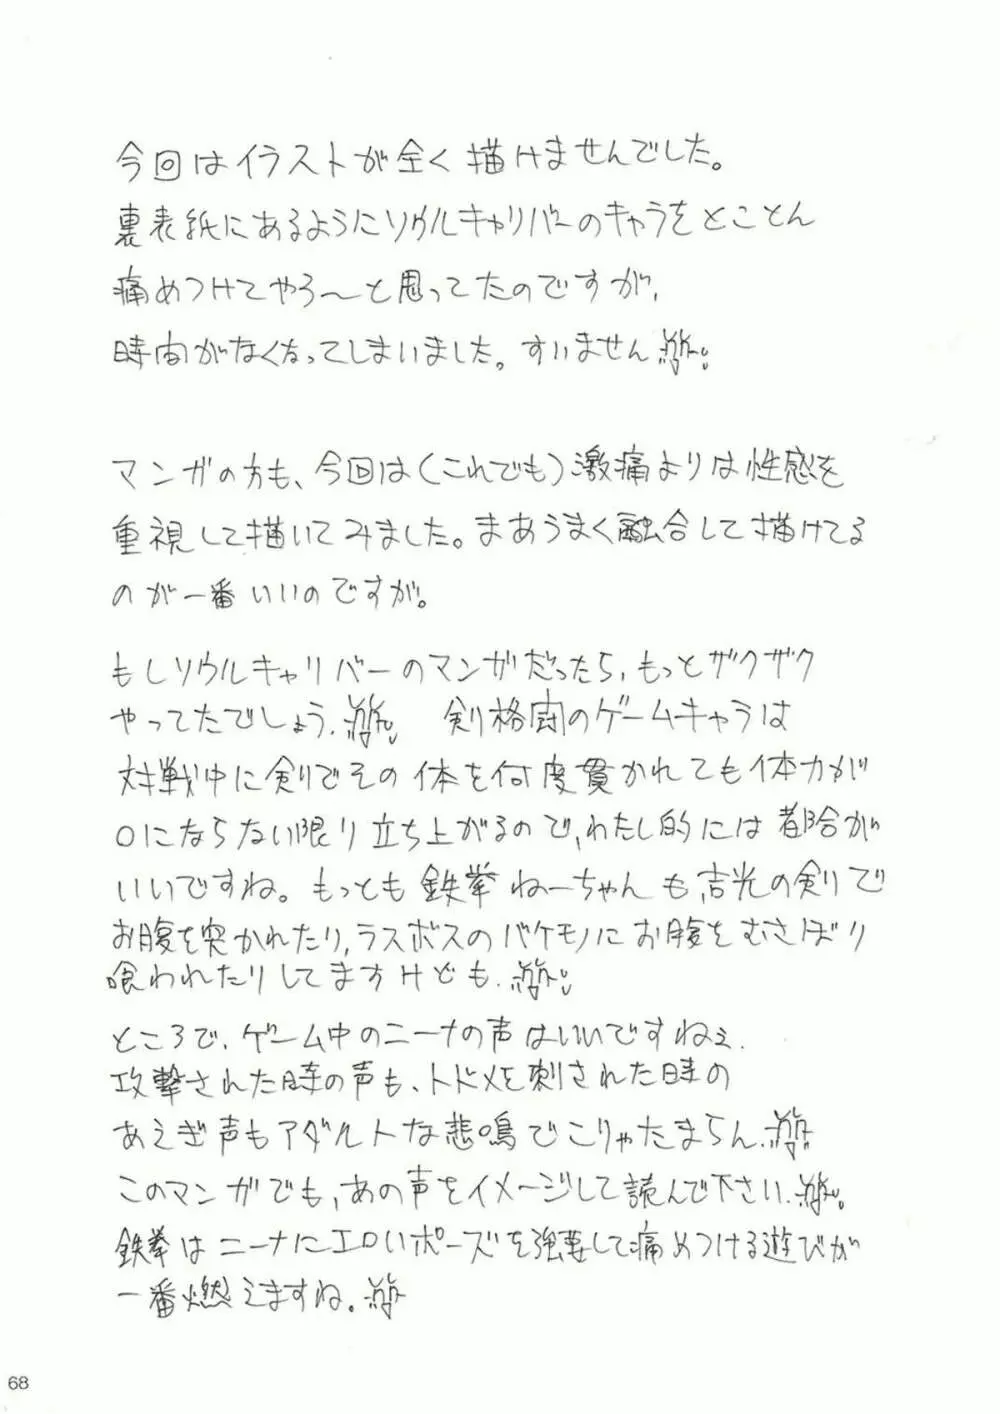 今回はイラストが全く描けませんでした。
裏表紙にあるようにソウルキャリバーのキャラをとことん
痛めつけてやろ〜と思ってたのですが、
時間がなくなってしまいました。すいません
マンガの方も、今回は(これでも)激痛よりは性感を
重視して描いてみました。まあうまく融合して描けてる
のが一番いいのですが。
もしソウルキャリバーのマンガだったら、もっとザクザク
やってたでしょう。 剣格闘のゲームキャラは
対戦中に剣でその体を何度貫かれても体力が
0にならない限り立ち上がるので、わたし的には都合が
いいですね。もっとも鉄拳ねーちゃんも、吉光の剣で
お腹を突かれたり、ラスボスのバケモノにお腹をむさぼり
喰われたりしてますけども.
ところで、ゲーム中のニーナの声はいいですねぇ.
攻撃された時の声も、トドメを刺された時の
あえぎ声もアダルトな悲鳴でこりゃたまらん.
このマンガでも、あの声をイメージして読んで下さい.
鉄拳はニーナにエロいポーズを強要して痛めつける遊びが
一番燃えますね。
68